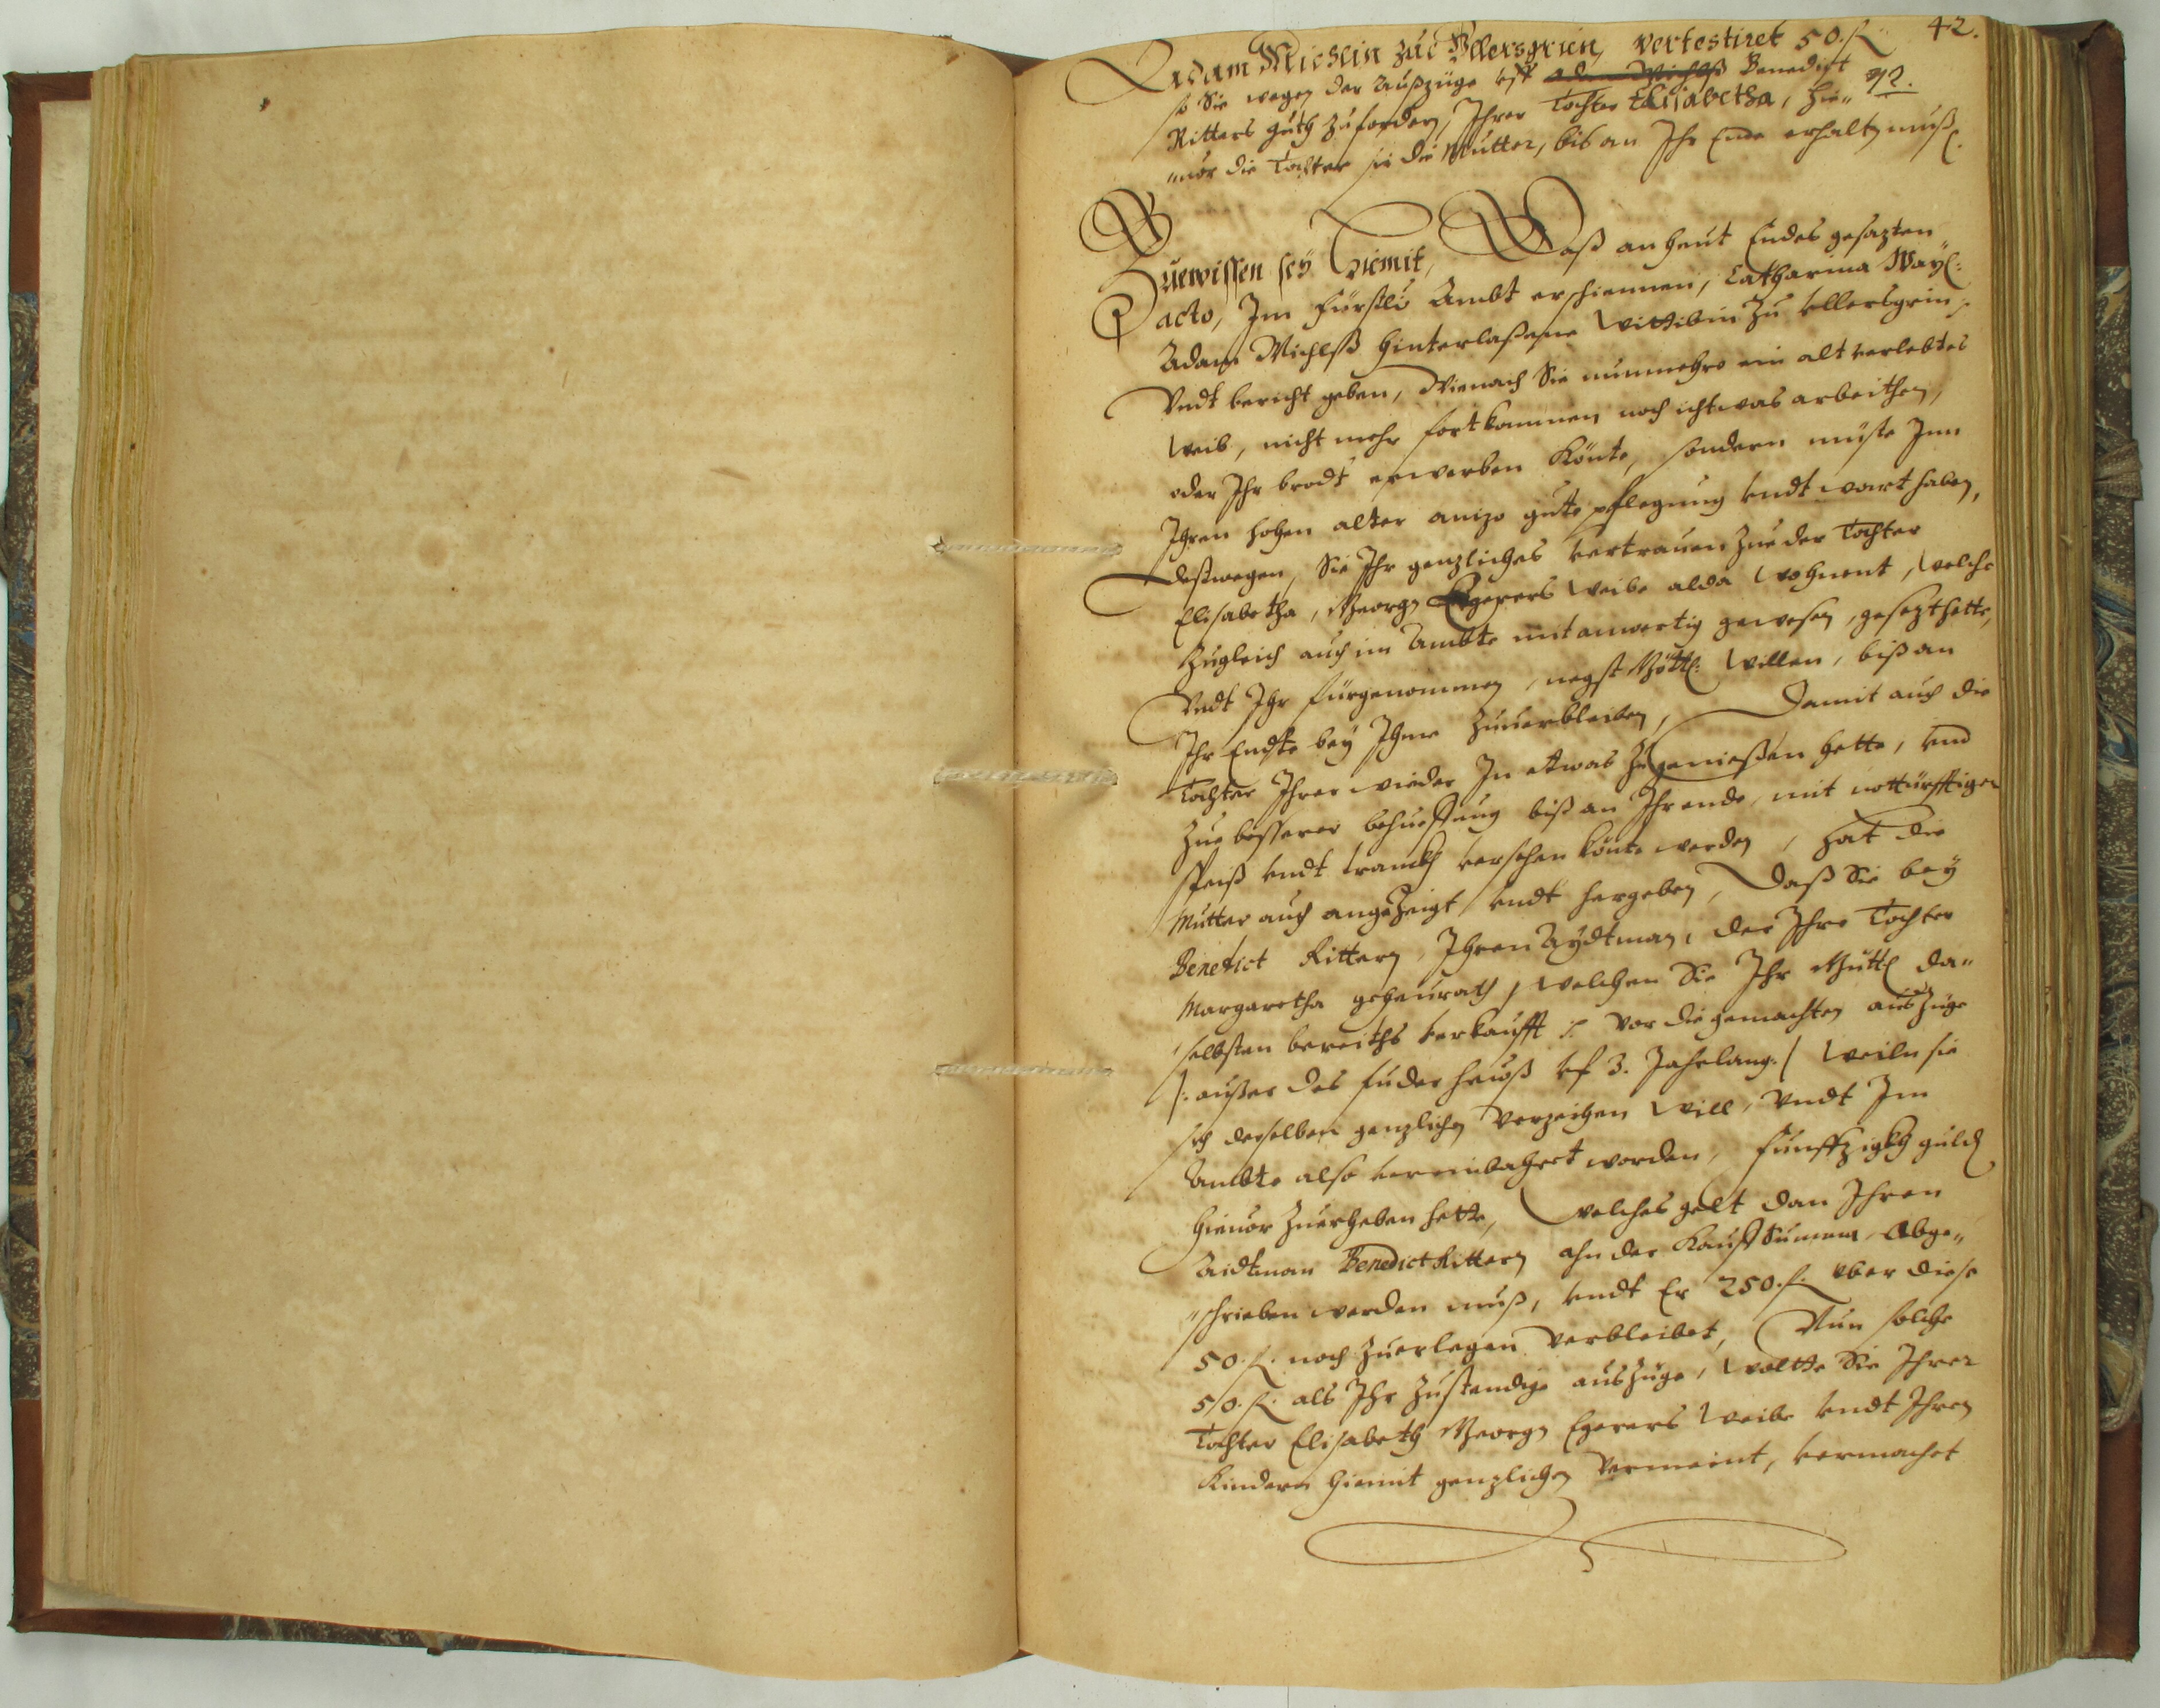 42.
Adam Michlin zue Ullersgrien, vertestiret 50. fl
so Sie wegen der Außzüge uff Adam Michlß Benedict
Ritters guth zufordern, Ihrer Tochter Elisabetha, hie„
„uor die Tochter sie die Mutter, bis an Ihr Ende erhalten muß.
42.
Zuewissen sey hiemit, Daß an heut Endes gesazten
Dacto, Im Fürstl: Ambt erschiennen, Catharina Wayl:
Adam Michlß hinterlaßene Wittibin zu Ullersgrin,
Vndt bericht geben, Wienach Sie nunmehro ein alt verlebtes
Weib, nicht mehr fortkommen noch ichtwas arbeithen,
oder Ihr brodt erwerben Könte, sondern müste Inn
Ihren hohen alter anizo gute pflegung vndt wart haben,
Deßwegen, Sie Ihr genzliches vertrauen Zue der Tochter
Elisabetha, Georgen Egerers Weibe alda Wohnent, Welche
Zugleich auch im Ambte mit anwertig gewesen, gesezt hette,
Vndt Ihr fürgenommen, negst Göttl: Willen, biß an
Ihr Endte bey Ihme Zuuerbleiben, Damit auch die
Tochter Ihrer wieder In etwas Zugenießen hette, vnd
Zue besserer behueffung biß an Ihr ende, mit notturfftiger
speiß vndt tranckh versehen könte werden, hat die
Mutter auch angezeigt vndt hergeben, Daß Sie bey
Benedict Rittern, Ihren Aydtman, der Ihre Tochter
Margaretha geheurath, Welchen Sie Ihr Güttl da„
selbsten bereiths verkaufft, vor die gemachten auszüge
/: außer des fuder heuß uf 3. Jahrlang :/ Weiln sie
sich derselben genzlichen Verzeihen Will, Vndt Im
Ambte also vereinbahrt worden, funffzigkh guld
hieuor Zuerheben hette, Welches gelt dan Ihren
Aidtman Benedict Rittern ahn der Kauff Summa Abge„
„schrieben werden muß, vndt Er 250. fl. vber diese
50. fl. noch Zuerlegen Verbleibet, Nun solche
50. fl. als Ihr Zustendige auszüge, Woltte Sie Ihrer
Tochter Elisabeth Georgen Egerers Weibe vndt Ihren
Kindern hiemit genzlichen Vermeint, vermachet